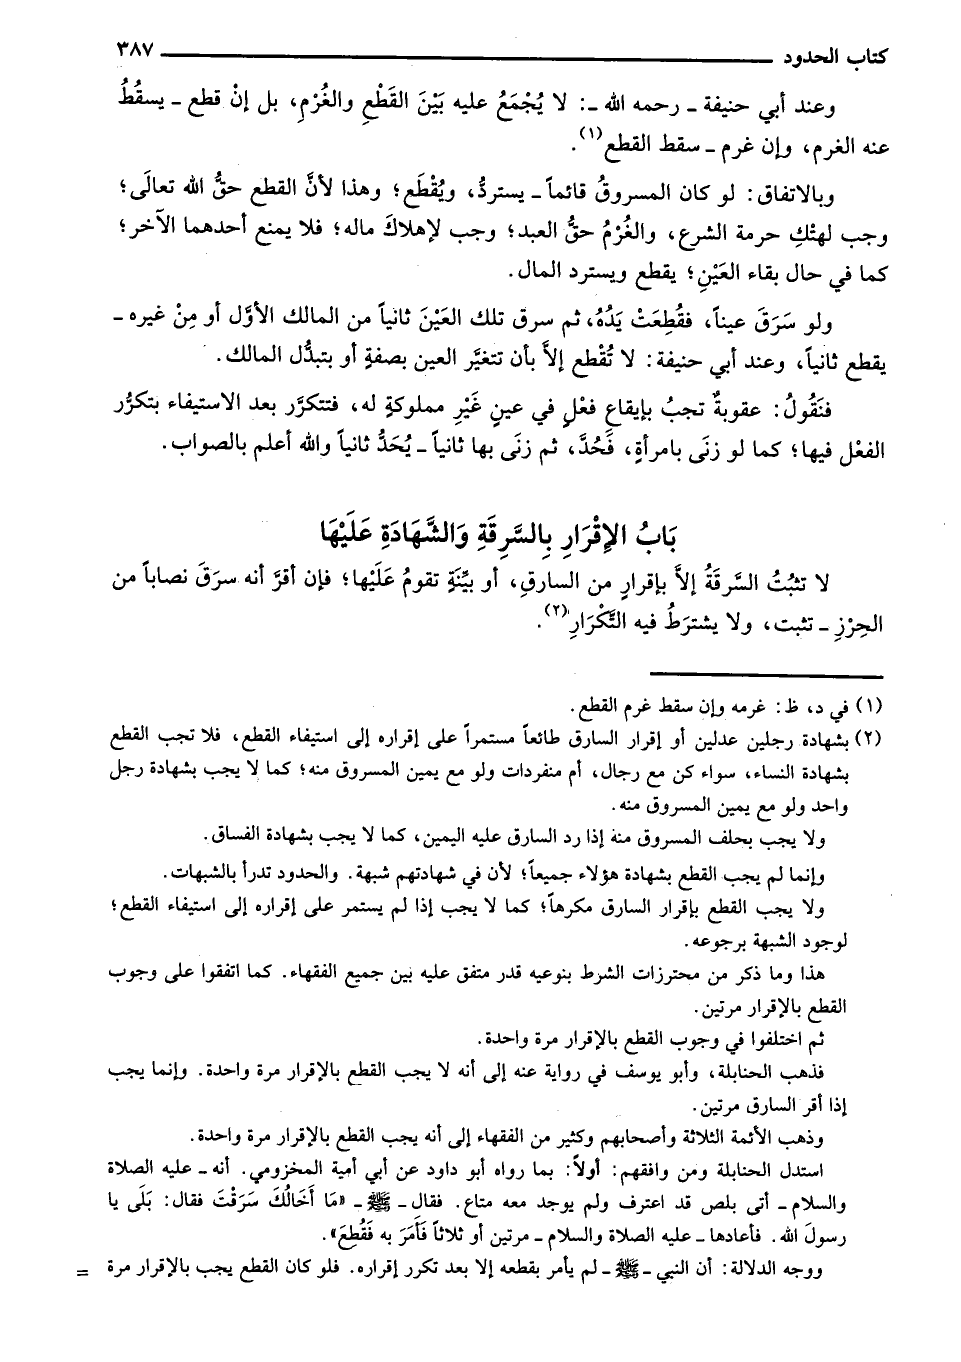 كتاب الحدود ٣٨٧
وعند أبي حنيفة ـ رحمه الله ـ: لا يُجْمَعُ عليه بَيْنَ القَطْعِ والغُرْمِ، بل إنْ قطع ـ يسقُطُ
عنه الغرم، وإن غرم ـ سقط القطع(١).
وبالاتفاق: لو كان المسروقُ قائماً ـ يستردُّ، ويُقْطَع؛ وهذا لأنَّ القطع حقُّ الله تعالَى؛
وجب لهتْكِ حرمة الشرع، والغُرْمُ حقُّ العبد؛ وجب لإهلاكَ ماله؛ فلا يمنع أحدهما الآخر؛
كما في حال بقاء العَيْنِ؛ يقطع ويسترد المال.
ولو سَرَقَ عيناً، فقُطِعَتْ يَدُهُ، ثم سرق تلك العَيْنَ ثانياً من المالك الأوَّل أو مِنْ غيره ـ
يقطع ثانياً، وعند أبي حنيفة: لا تُقْطع إلاَّ بأن تتغيَّر العين بصفةٍ أو بتبدُّل المالك.
فنَقُولُ: عقوبةٌ تجبُ بإيقاع فعْلٍ في عينٍ غَيْرِ مملوكةٍ له، فتتكرَّر بعد الاستيفاء بتكرُّر
الفعْل فيها؛ كما لو زنَى بامرأةٍ، فَحُدَّ، ثم زنَى بها ثانياً ـ يُحَدُّ ثانياً والله أعلم بالصواب.
بَابُ الإِقْرَارِ بِالسَّرِقَةِ وَالشَّهَادَةِ عَلَيْهَا
لا تثبُتُ السَّرقَةُ إلاَّ بإقرارٍ من السارقِ، أو بيِّنَةٍ تقومُ عَلَيْها؛ فإن أقرَّ أنه سرَقَ نصاباً من
الحِرْزِ ـ تثبت، ولا يشترَطُ فيه التَّكْرَارِ(٢).
(١) في د، ظ: غرمه وإن سقط غرم القطع.
(٢) بشهادة رجلين عدلين أو إقرار السارق طائعاً مستمراً على إقراره إلى استيفاء القطع، فلا تجب القطع
بشهادة النساء، سواء كن مع رجال، أم منفردات ولو مع يمين المسروق منه؛ كما لا يجب بشهادة رجل
واحد ولو مع يمين المسروق منه.
ولا يجب بحلف المسروق منه إذا رد السارق عليه اليمين، كما لا يجب بشهادة الفساق.
وإنما لم يجب القطع بشهادة هؤلاء جميعاً؛ لأن في شهادتهم شبهة. والحدود تدرأ بالشبهات.
ولا يجب القطع بإقرار السارق مكرهاً؛ كما لا يجب إذا لم يستمر على إقراره إلى استيفاء القطع؛
لوجود الشبهة برجوعه.
هذا وما ذكر من محترزات الشرط بنوعيه قدر متفق عليه بين جميع الفقهاء. كما اتفقوا على وجوب
القطع بالإقرار مرتين.
ثم اختلفوا في وجوب القطع بالإقرار مرة واحدة.
فذهب الحنابلة، وأبو يوسف في رواية عنه إلى أنه لا يجب القطع بالإقرار مرة واحدة. وإنما يجب
إذا أقر السارق مرتين.
وذهب الأئمة الثلاثة وأصحابهم وكثير من الفقهاء إلى أنه يجب القطع بالإقرار مرة واحدة.
استدل الحنابلة ومن وافقهم: أولاً: بما رواه أبو داود عن أبي أمية المخزومي. أنه ـ عليه الصلاة
والسلام ـ أتى بلص قد اعترف ولم يوجد معه متاع. فقال ـ ﷺ ـ «مَا أَخَالُكَ سَرَقْتَ فقال: بَلَى يا
رسولَ الله. فأعادها ـ عليه الصلاة والسلام ـ مرتين أو ثلاثاً فَأَمَرَ به فَقُطِعَ».
ووجه الدلالة: أن النبي ـ ﷺ ـ لم يأمر بقطعه إلا بعد تكرر إقراره. فلو كان القطع يجب بالإقرار مرة =